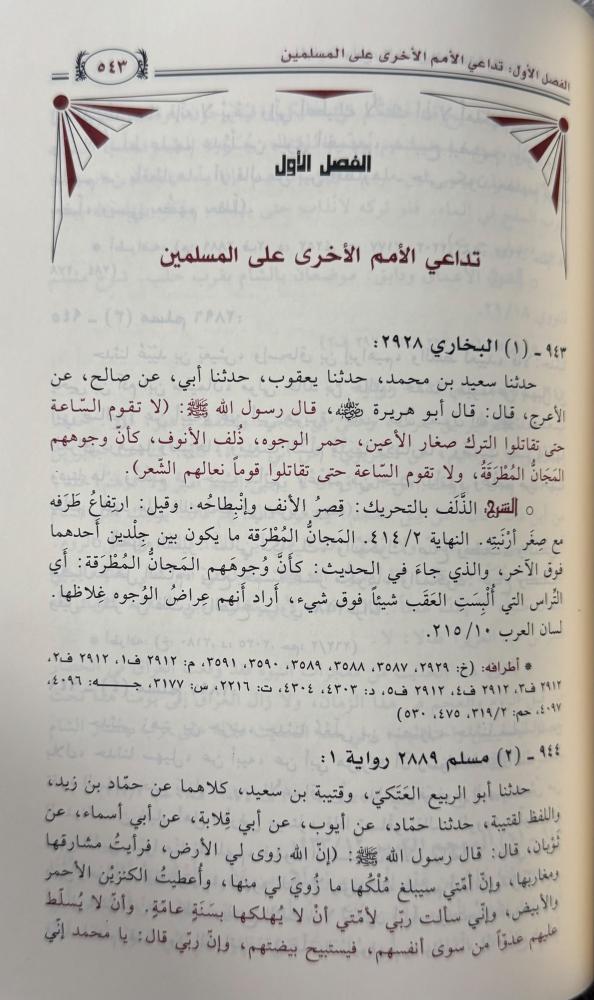 الفصل الأول: تداعي الأمم الأخرى على المسلمين
٥٤٣
الفصل الأول
تداعي الأمم الأخرى على المسلمين
٩٤٣ - (١) البخاري ٢٩٢٨:
حدثنا سعيد بن محمد، حدثنا يعقوب، حدثنا أبي، عن صالح، عن
الأعرج، قال: قال أبو هريرة رضي الله عنه، قال رسول الله ﷺ: (لا تقوم السّاعة
حتى تقاتلوا الترك صغار الأعين، حمر الوجوه، ذُلف الأنوف، كأنّ وجوههم
المَجَانُّ المُطْرَقَةُ، ولا تقوم السّاعة حتى تقاتلوا قوماً نعالهم الشّعر).
○ الشرح: الذَّلَف بالتحريك: قِصرُ الأنف وانْبِطاحُه. وقيل: ارتفاعُ طَرَفه
مع صِغَر أرْنَبَتِه. النهاية ٤١٤/٢. المَجانُّ المُطْرَقة ما يكون بين جِلْدين أحدهما
فوق الآخر، والذي جاءَ في الحديث: كَأنَّ وُجوهَهم المَجانُّ المُطْرَقة: أَي
التِّراس التي أُلْبِسَتِ العَقَب شيئاً فوق شيء، أراد أَنهم عِراضُ الوُجوه غِلاظها.
لسان العرب ٢١٥/١٠.
* أطرافه: (خ: ٢٩٢٩، ٣٥٨٧، ٣٥٨٨، ٣٥٨٩، ٣٥٩٠، ٣٥٩١، م: ٢٩١٢ ف١، ٢٩١٢ ف٢،
٢٩١٢ ف٣، ٢٩١٢ ف٤، ٢٩١٢ ف٥، د: ٤٣٠٣، ٤٣٠٤، ت: ٢٢١٦، س: ٣١٧٧، جـه: ٤٠٩٦،
٤٠٩٧، حم: ٣١٩/٢، ٤٧٥، ٥٣٠)
٩٤٤ - (٢) مسلم ٢٨٨٩ رواية ١:
حدثنا أبو الربيع العَتَكيّ، وقتيبة بن سعيد، كلاهما عن حمّاد بن زيد،
واللفظ لقتيبة، حدثنا حمّاد، عن أيوب، عن أبي قِلابة، عن أبي أسماء، عن
ثَوْبان، قال: قال رسول الله ﷺ: (إنّ الله زوى لي الأرض، فرأيتُ مشارقها
ومغاربها، وإنّ أمّتي سيبلغ مُلْكُها ما زُوِيَ لي منها، وأُعطيتُ الكنزيْن الأحمر
والأبيض، وإنّي سألت ربّي لأمّتي أنْ لا يُهلكها بسَنَةٍ عامّةٍ. وأنْ لا يُسلّط
عليهم عدوّاً من سوى أنفسهم، فيستبيح بيضتهم، وإنّ ربّي قال: يا محمد إنّي